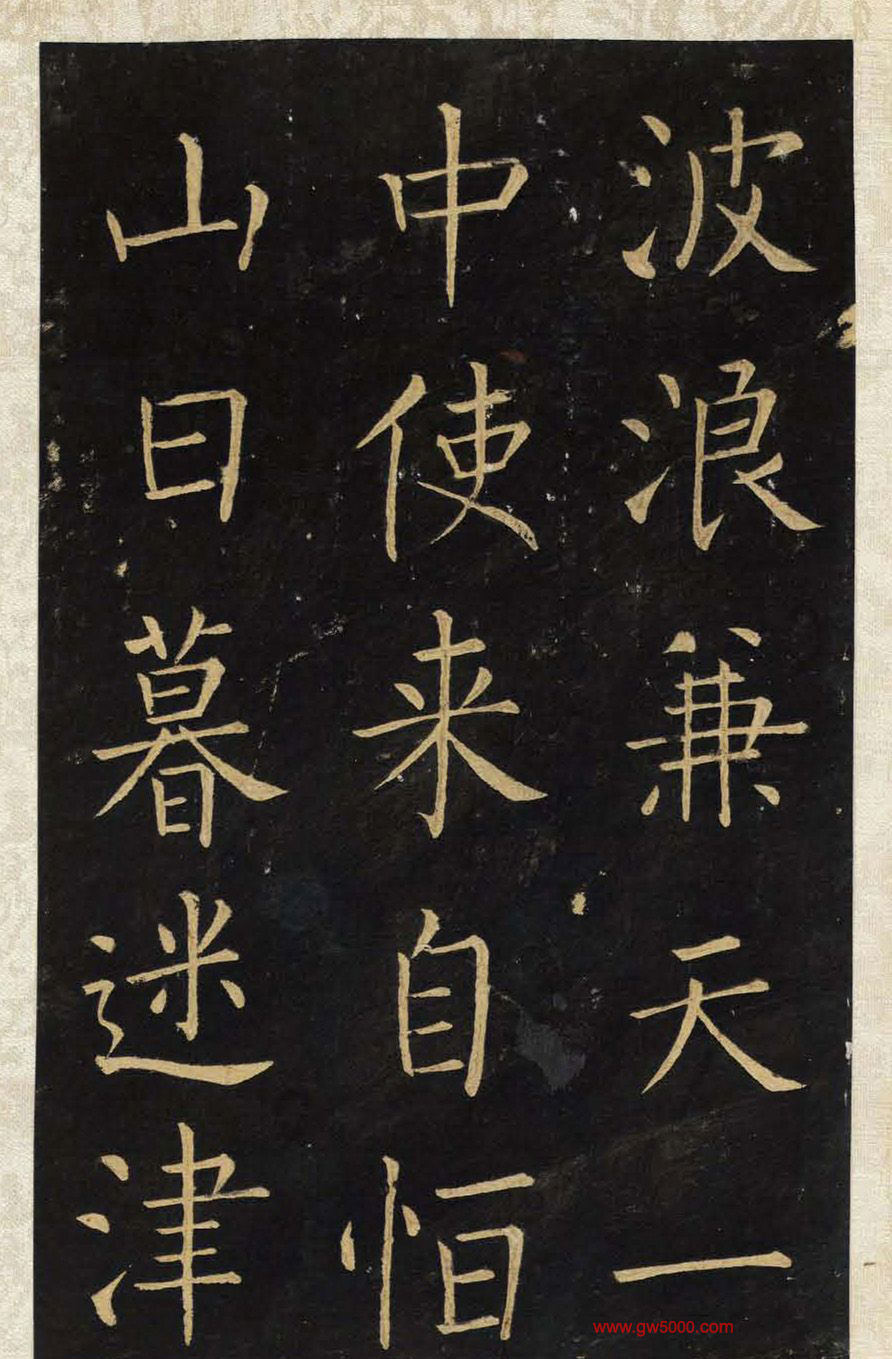 波浪兼天一
中使来自恒
山日暮迷津
www.gw5000.com